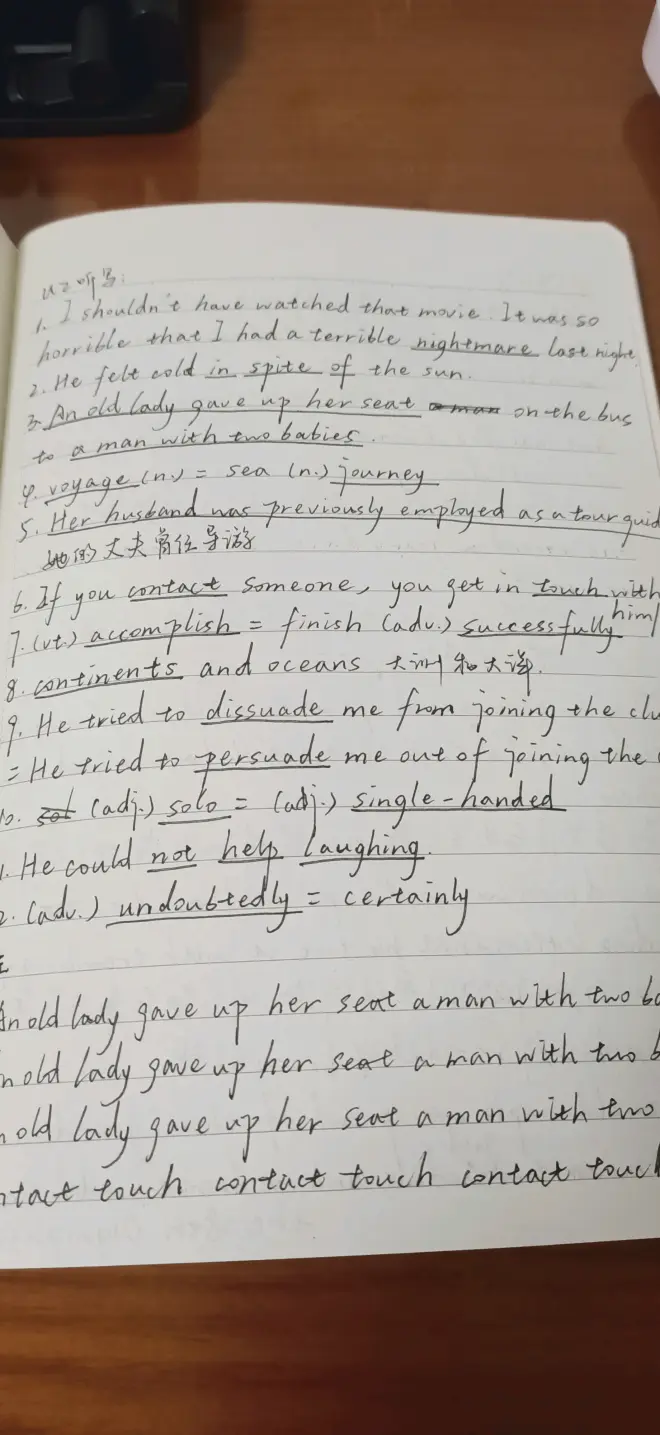 U2听写:
1. I shouldn't have watched that movie. It was so
horrible that I had a terrible nightmare last night.
2. He felt cold in spite of the sun.
3. An old lady gave up her seat on the bus
to a man with two babies.
4. voyage (n.) = sea (n.) journey
5. Her husband was previously employed as a tour guid
她的丈夫曾任导游
6. If you contact someone, you get in touch with
him/
7. (vt.) accomplish = finish (adv.) successfully
8. continents and oceans 大洲和大洋.
9. He tried to dissuade me from joining the clu
= He tried to persuade me out of joining the
10. (adj.) solo = (adj.) single-handed
1. He could not help laughing.
2. (adv.) undoubtedly = certainly
An old lady gave up her seat a man with two ba
n old lady gave up her seat a man with two b
old lady gave up her seat a man with two
ntact touch contact touch contact touch